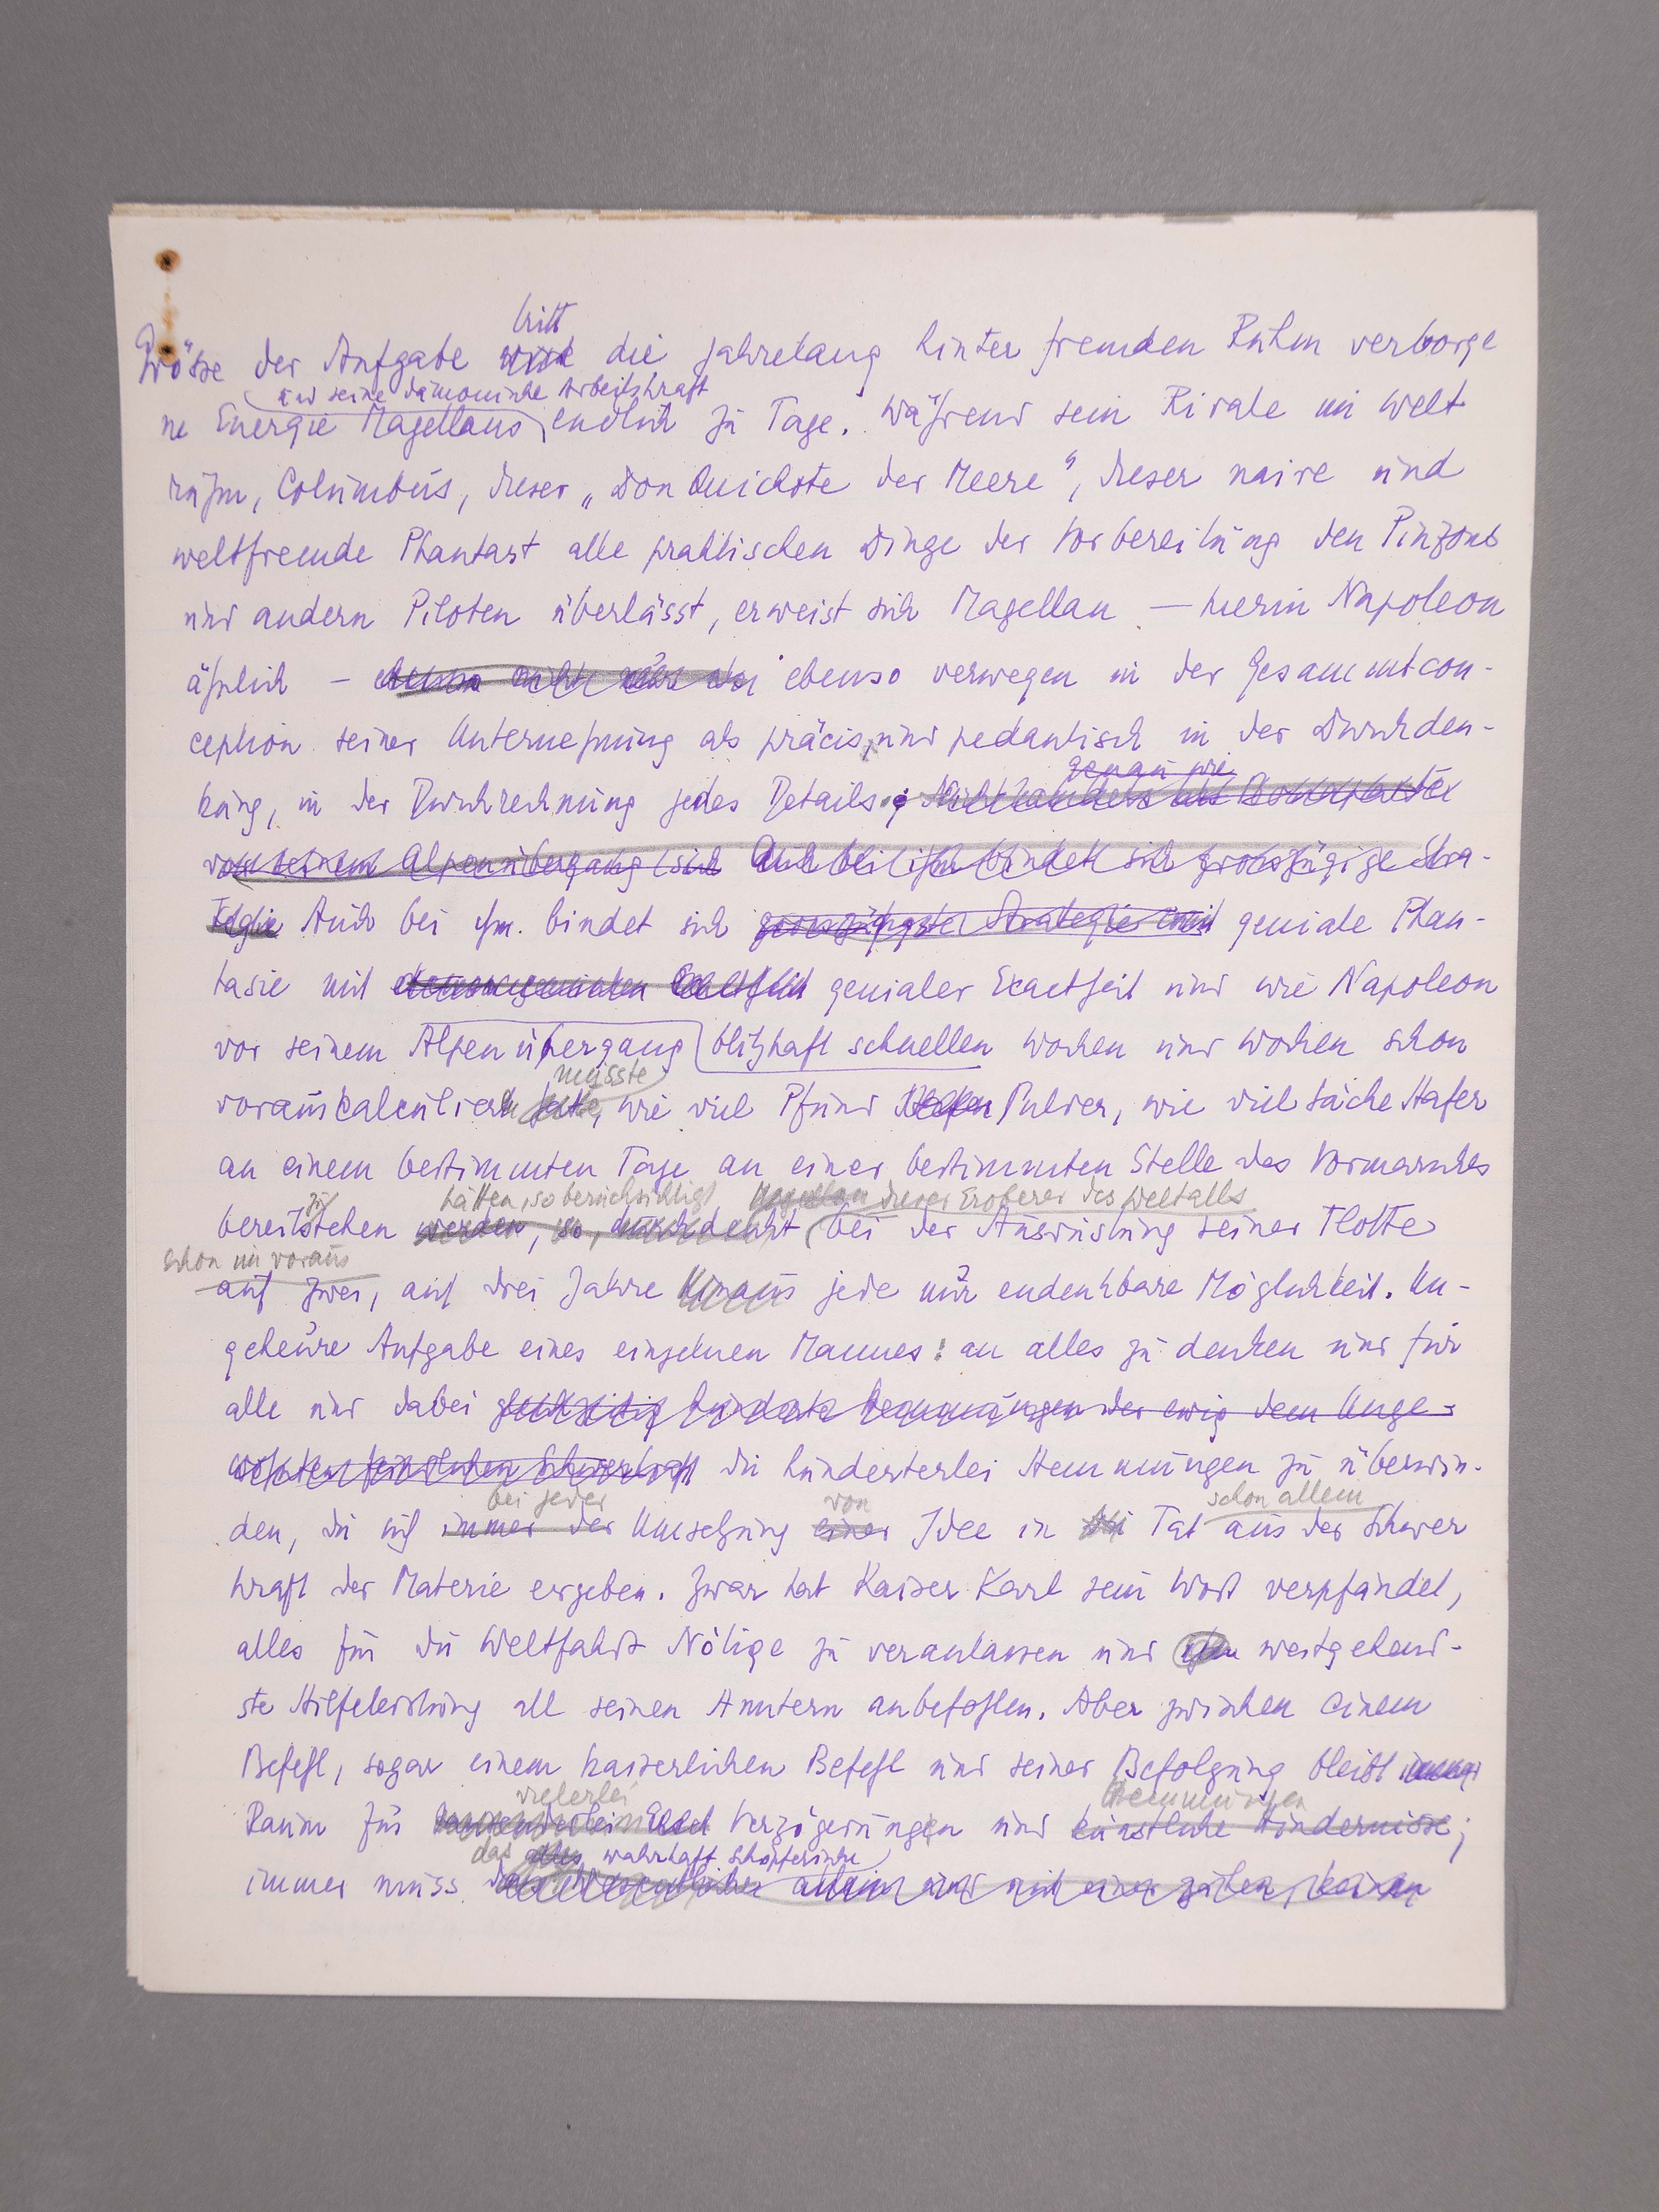 tritt
Grösse der Aufgabe die jahrelang hinter fremden Ruhm verborge
und seine dämonische Arbeitskraft
ne Energie Magellans endlich zu Tage. Während sein Rivale im Welt
ruhm, Columbus, dieser „Don Quichote der Meere“, dieser naive und
weltfremde Phantast alle praktischen Dinge der Vorbereitung den Pinzons
und andern Piloten überlässt, erweist sich Magellan – hierin Napoleon
ähnlich – ebenso verwegen in der Gesammtcon-
ception seiner Unternehmung als präcis und pedantisch in der Durchden-
genau wie
kung, in der Durchrechnung jedes Details.
vor seinem Alpenübergang sich Auch bei ihm bindet sich grosszügige Stra-
tegie Auch bei ihm bindet sich grosszügigster Strategie mit geniale Phan-
tasie mit genialer Exactheit und wie Napoleon
vor seinem Alpenübergang blitzhaft schnellen Wochen und Wochen schon
musste
vorauscalculiern hatte, wie viel Pfund Pulver, wie viel Säcke Hafer
an einem bestimmten Tage an einer bestimmten Stelle des Vormarsches
zu hätten, so berücksichtigt Magellan dieser Eroberer des Weltalls
bereitstehen werden, so, durchdenkt bei der Ausrüstung seiner Flotte
schon im voraus
auf zwei, auf drei Jahre hinaus jede nur endenkbare Möglichkeit. Un-
geheure Aufgabe eines einzelnen Mannes: an alles zu denken und für
alle und dabei gleichzeitig hunderte Hemmungen der ewig dem Unge-
die hunderterlei Hemmungen zu überwin-
bei jeder von schon allem
den, die sich immer der Umsetzung einer Idee in die Tat aus der Schwer
kraft der Materie ergeben. Zwar hat Kaiser Karl sein Wort verpfändet,
alles für die Weltfahrt Nötige zu veranlassen und weitgehend-
ste Hilfeleistung all seinen Ämtern anbefohlen. Aber zwischen einem
Befehl, sogar einem kaiserlichen Befehl und seiner Befolgung bleibt immer
vielerlei Hemmungen
Raum für Verzögerungen und künstliche Hindernisse;
das alles wahrhaft Schöpferische
immer muss